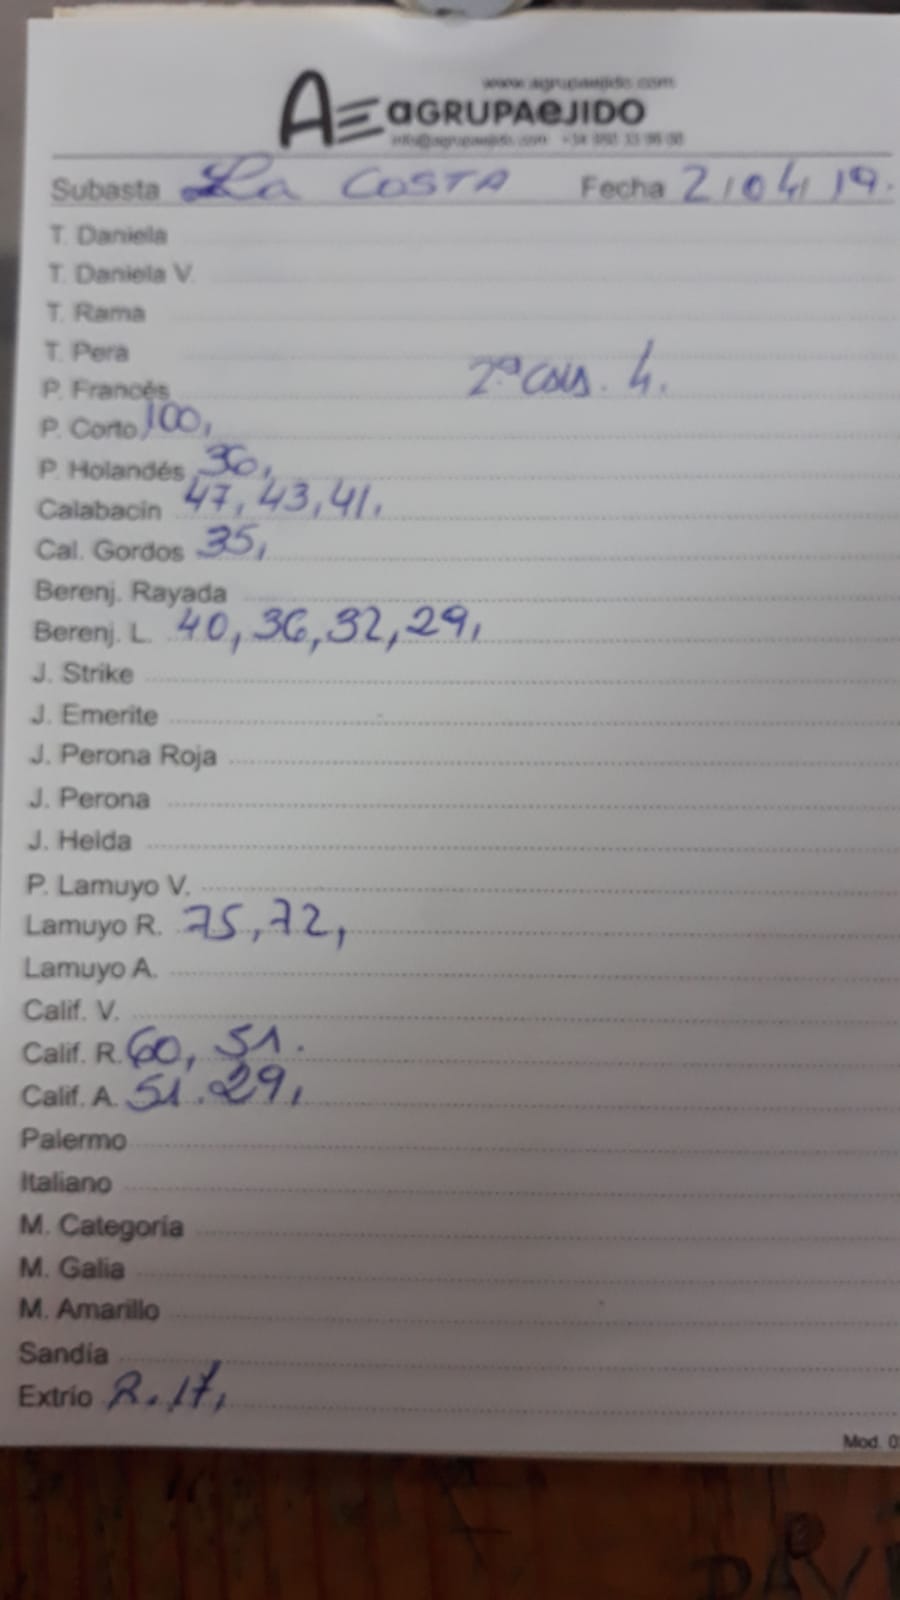 www.agrupaejido.com
AE aGRUPAeJIDO
info@agrupaejido.com
Subasta La COSTA Fecha 2/04/19.
T. Daniela
T. Daniela V.
T. Rama
T. Pera
2ª COLS. 4.
P. Francés
P. Corto 100,
P. Holandés 36,
Calabacin 47, 43, 41.
Cal. Gordos 35,
Berenj. Rayada
Berenj. L. 40, 36, 32, 29,
J. Strike
J. Emerite
J. Perona Roja
J. Perona
J. Helda
P. Lamuyo V.
Lamuyo R. 75, 72,
Lamuyo A.
Calif. V.
Calif. R. 60, 51.
Calif. A. 51. 29,
Palermo
Italiano
M. Categoría
M. Galia
M. Amarillo
Sandía
Extrio R. 17,
Mod. 0